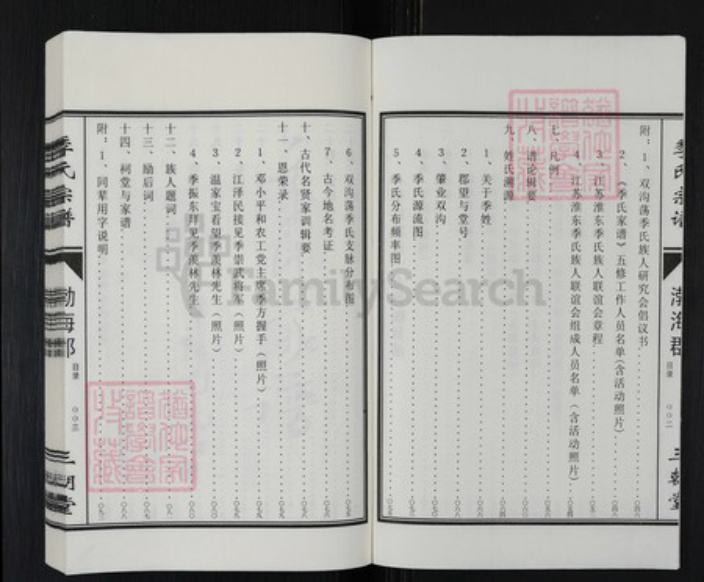 季氏宗谱
渤海郡
目录
〇〇二
三朝堂
附:1、双沟荡季氏族人研究会倡议书
2、《季氏家谱》五修工作人员名单(含活动照片)
3、江苏淮东季氏族人联谊会章程
4、江苏淮东季氏族人联谊会组成人员名单(含活动照片)
七、凡例
八、谱论辑要
九、姓氏溯源
1、关于季姓
2、郡望与堂号
3、肇业双沟
4、季氏源流图
5、季氏分布频率图
6、双沟荡季氏支脉分布图
7、古今地名考证
十、古代名贤家训辑要
十一、恩荣录
1、邓小平和农工党主席季方握手(照片)
2、江泽民接见季崇武将军(照片)
3、温家宝看望季羡林先生(照片)
4、季振东拜见季羡林先生
十二、族人题词
十三、励后词
十四、祠堂与家谱
附:1、同辈用字说明
季氏宗谱
渤海郡
目录
〇〇三
三朝堂
FamilySearch